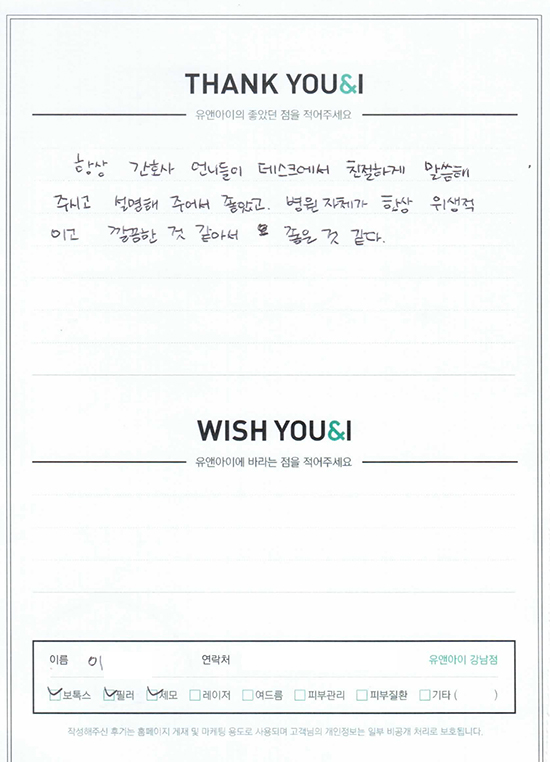 THANK YOU&I
유앤아이의 좋았던 점을 적어주세요
항상 간호사 언니들이 데스크에서 친절하게 말씀해
주시고 설명해 주어서 좋았고. 병원 자체가 항상 위생적
이고 깔끔한 것 같아서 좋은 것 같다.
WISH YOU&I
유앤아이에 바라는 점을 적어주세요
이름 이 연락처 유앤아이 강남점
보톡스 필러 제모 레이저 여드름 피부관리 피부질환 기타 ( )
작성해주신 후기는 홈페이지 게재 및 마케팅 용도로 사용되며 고객님의 개인정보는 일부 비공개 처리로 보호됩니다.